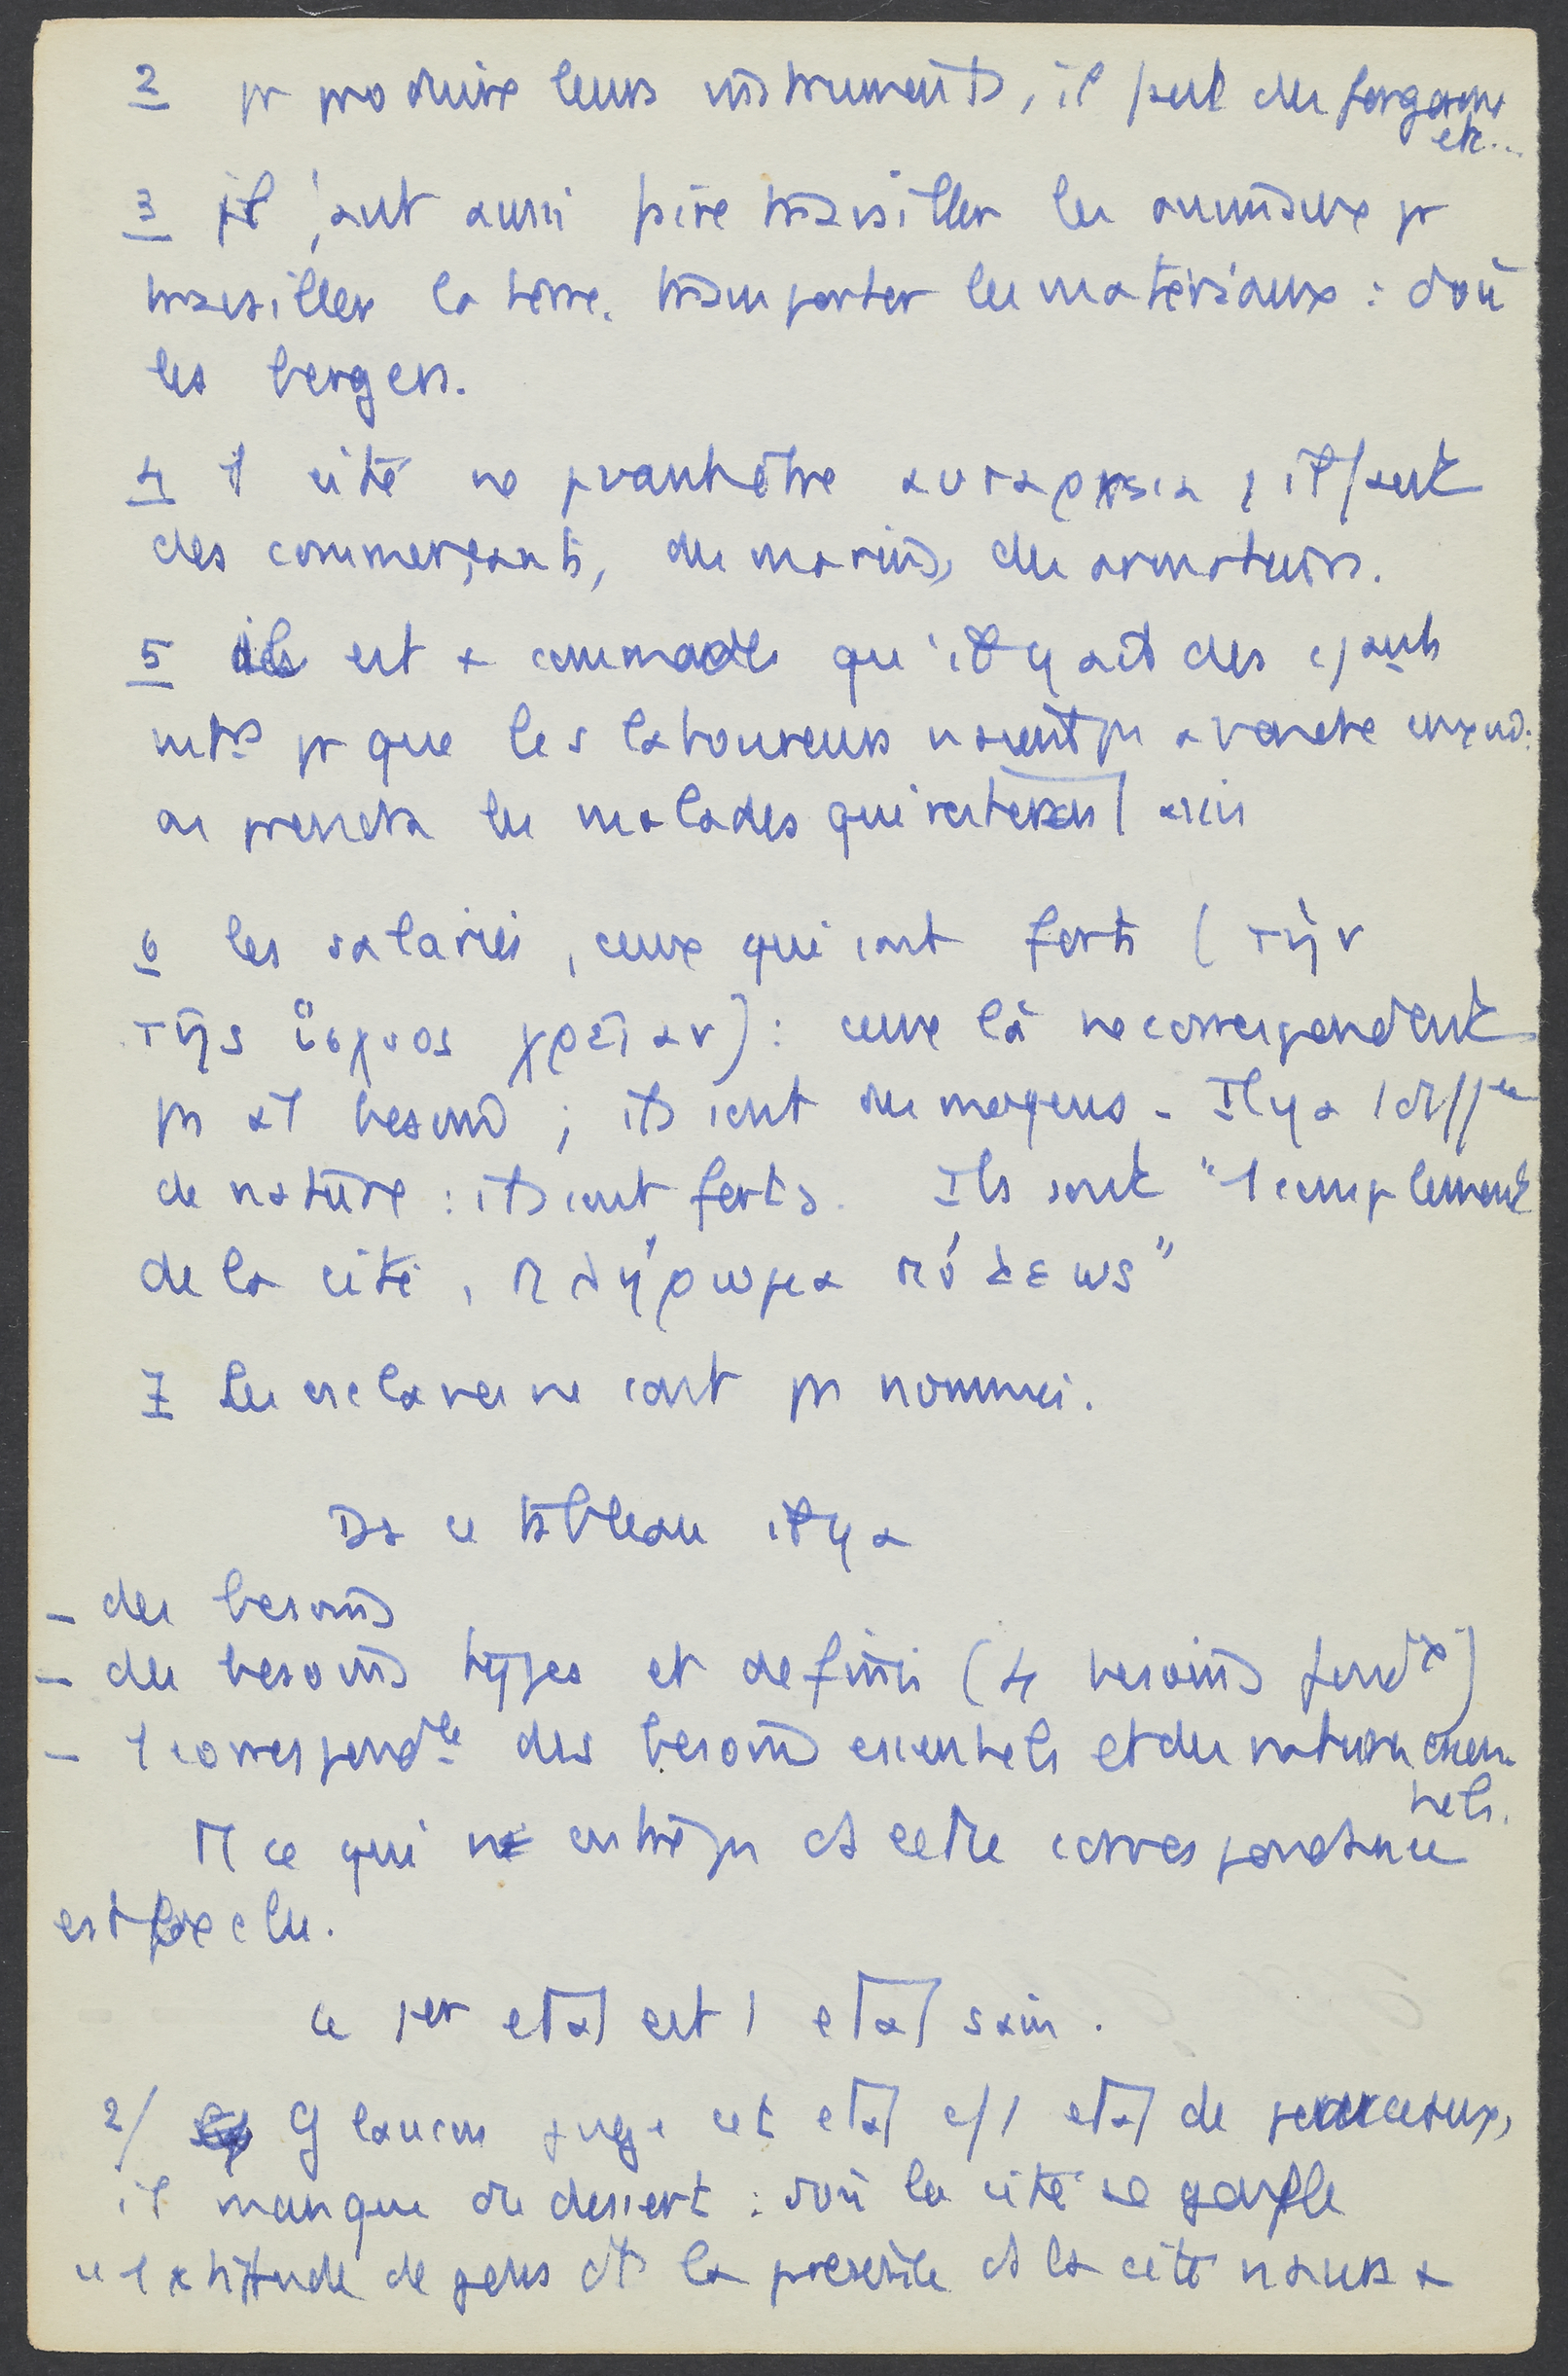 2 pr produire leurs instruments, il faut des forgerons
etc...
3 il faut aussi faire travailler les animaux pr
travailler la terre, transporter les matériaux : d'où
les bergers.
4 1 cité ne pvant être αυταρκεια, il faut
des commerçants, des marins, des armateurs.
5 il est + commode qu'il y ait des
pr que les laboureurs n'aient pas a vendre eux m.
on prendra les malades qui resteront assis
6 les salariés, ceux qui sont forts (τὴν
τῆς ἰσχυος χρείαν) : ceux là ne correspondent
pas a 1 besoin ; ils sont des moyens - Il y a 1 diffce
de nature : ils sont forts. Ils sont "1 complement
de la cité, πλήρωμα πόλεως"
7 Les esclaves ne sont pas nommés.
Ds ce tableau il y a
- des besoins
- des besoins types et definis (4 besoins fondx)
- 1 correspondce des besoins essentiels et des natures essen-
tiels.
Tt ce qui n'entre pas ds cette correspondance
est exclu.
ce 1er etat est 1 etat sain.
2/ Glaucon juge cet etat c/ 1 etat de pourceaux,
il manque de dessert : d'où la cité se gonfle
1 de gens dt la presence ds la cité n'aura